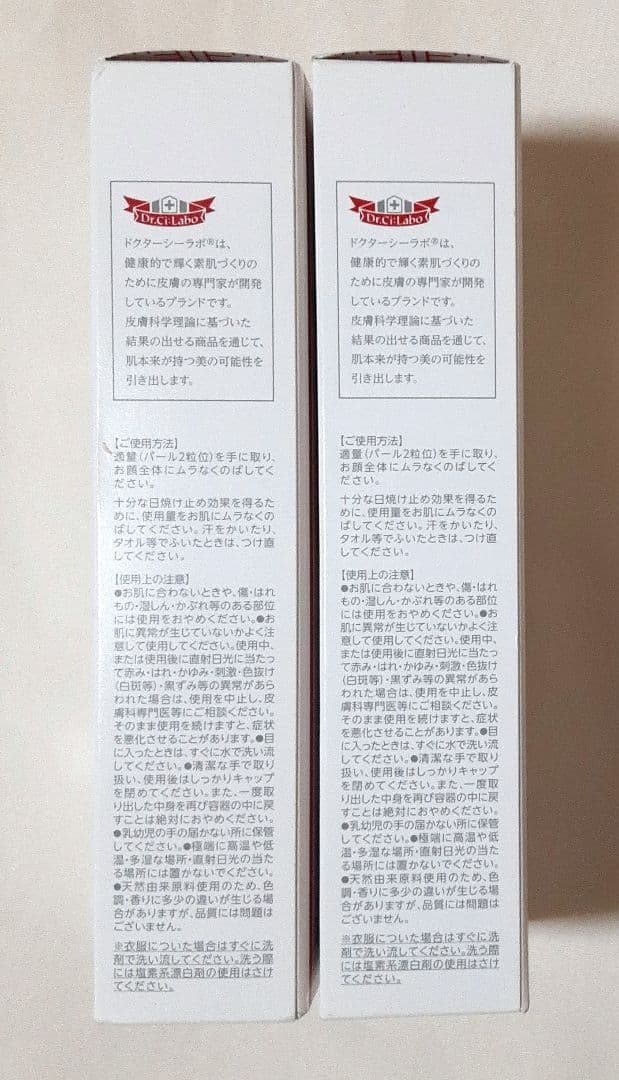 Dr.Ci:Labo
ドクターシーラボ®は、
健康的で輝く素肌づくりの
ために皮膚の専門家が開発
しているブランドです。
皮膚科学理論に基づいた
結果の出せる商品を通じて、
肌本来が持つ美の可能性を
引き出します。
【ご使用方法】
適量(パール2粒位)を手に取り、
お顔全体にムラなくのばしてく
ださい。
十分な日焼け止め効果を得るた
めに、使用量をお肌にムラなくの
ばしてください。汗をかいたり、
タオル等でふいたときは、つけ直
してください。
【使用上の注意】
●お肌に合わないときや、傷・はれ
もの・湿しん・かぶれ等のある部位
には使用をおやめください。●お
肌に異常が生じていないかよく注
意して使用してください。使用中、
または使用後に直射日光に当たっ
て赤み・はれ・かゆみ・刺激・色抜け
(白斑等)・黒ずみ等の異常があら
われた場合は、使用を中止し、皮
膚科専門医等にご相談ください。
そのまま使用を続けますと、症状
を悪化させることがあります。●目
に入ったときは、すぐに水で洗い流
してください。●清潔な手で取り
扱い、使用後はしっかりキャップ
を閉めてください。また、一度取
り出した中身を再び容器の中に戻
すことは絶対におやめください。
●乳幼児の手の届かない所に保管
してください。●極端に高温や低
温・多湿な場所・直射日光の当た
る場所には置かないでください。
●天然由来原料使用のため、色
調・香りに多少の違いが生じる場
合がありますが、品質には問題は
ございません。
※衣服についた場合はすぐに洗
剤で洗い流してください。洗う際
には塩素系漂白剤の使用はさけ
てください。
Dr.Ci:Labo
ドクターシーラボ®は、
健康的で輝く素肌づくりの
ために皮膚の専門家が開発
しているブランドです。
皮膚科学理論に基づいた
結果の出せる商品を通じて、
肌本来が持つ美の可能性を
引き出します。
【ご使用方法】
適量(パール2粒位)を手に取り、
お顔全体にムラなくのばしてく
ださい。
十分な日焼け止め効果を得るた
めに、使用量をお肌にムラなくの
ばしてください。汗をかいたり、
タオル等でふいたときは、つけ直
してください。
【使用上の注意】
●お肌に合わないときや、傷・はれ
もの・湿しん・かぶれ等のある部位
には使用をおやめください。●お
肌に異常が生じていないかよく注
意して使用してください。使用中、
または使用後に直射日光に当たっ
て赤み・はれ・かゆみ・刺激・色抜け
(白斑等)・黒ずみ等の異常があら
われた場合は、使用を中止し、皮
膚科専門医等にご相談ください。
そのまま使用を続けますと、症状
を悪化させることがあります。●目
に入ったときは、すぐに水で洗い流
してください。●清潔な手で取り
扱い、使用後はしっかりキャップ
を閉めてください。また、一度取
り出した中身を再び容器の中に戻
すことは絶対におやめください。
●乳幼児の手の届かない所に保管
してください。●極端に高温や低
温・多湿な場所・直射日光の当た
る場所には置かないでください。
●天然由来原料使用のため、色
調・香りに多少の違いが生じる場
合がありますが、品質には問題は
ございません。
※衣服についた場合はすぐに洗
剤で洗い流してください。洗う際
には塩素系漂白剤の使用はさけ
てください。